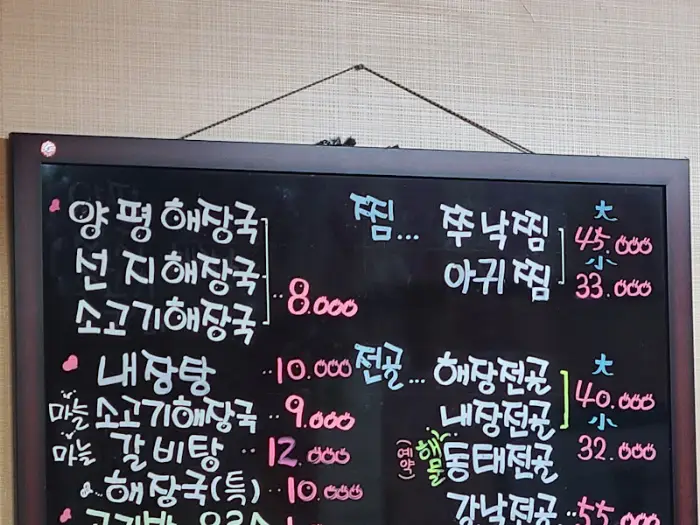 양평해장국
선지해장국
소고기해장국 ·· 8.000
내장탕 ·· 10.000
마늘 소고기해장국 ·· 9.000
마늘 갈비탕 ·· 12.000
해장국(특) ·· 10.000
찜... 쭈낙찜
아귀찜
大 45.000
小 33.000
전골... 해장전골
내장전골
大 40.000
小 32.000
(예약) 해물 동태전골
강낙전골 ·· 55.000